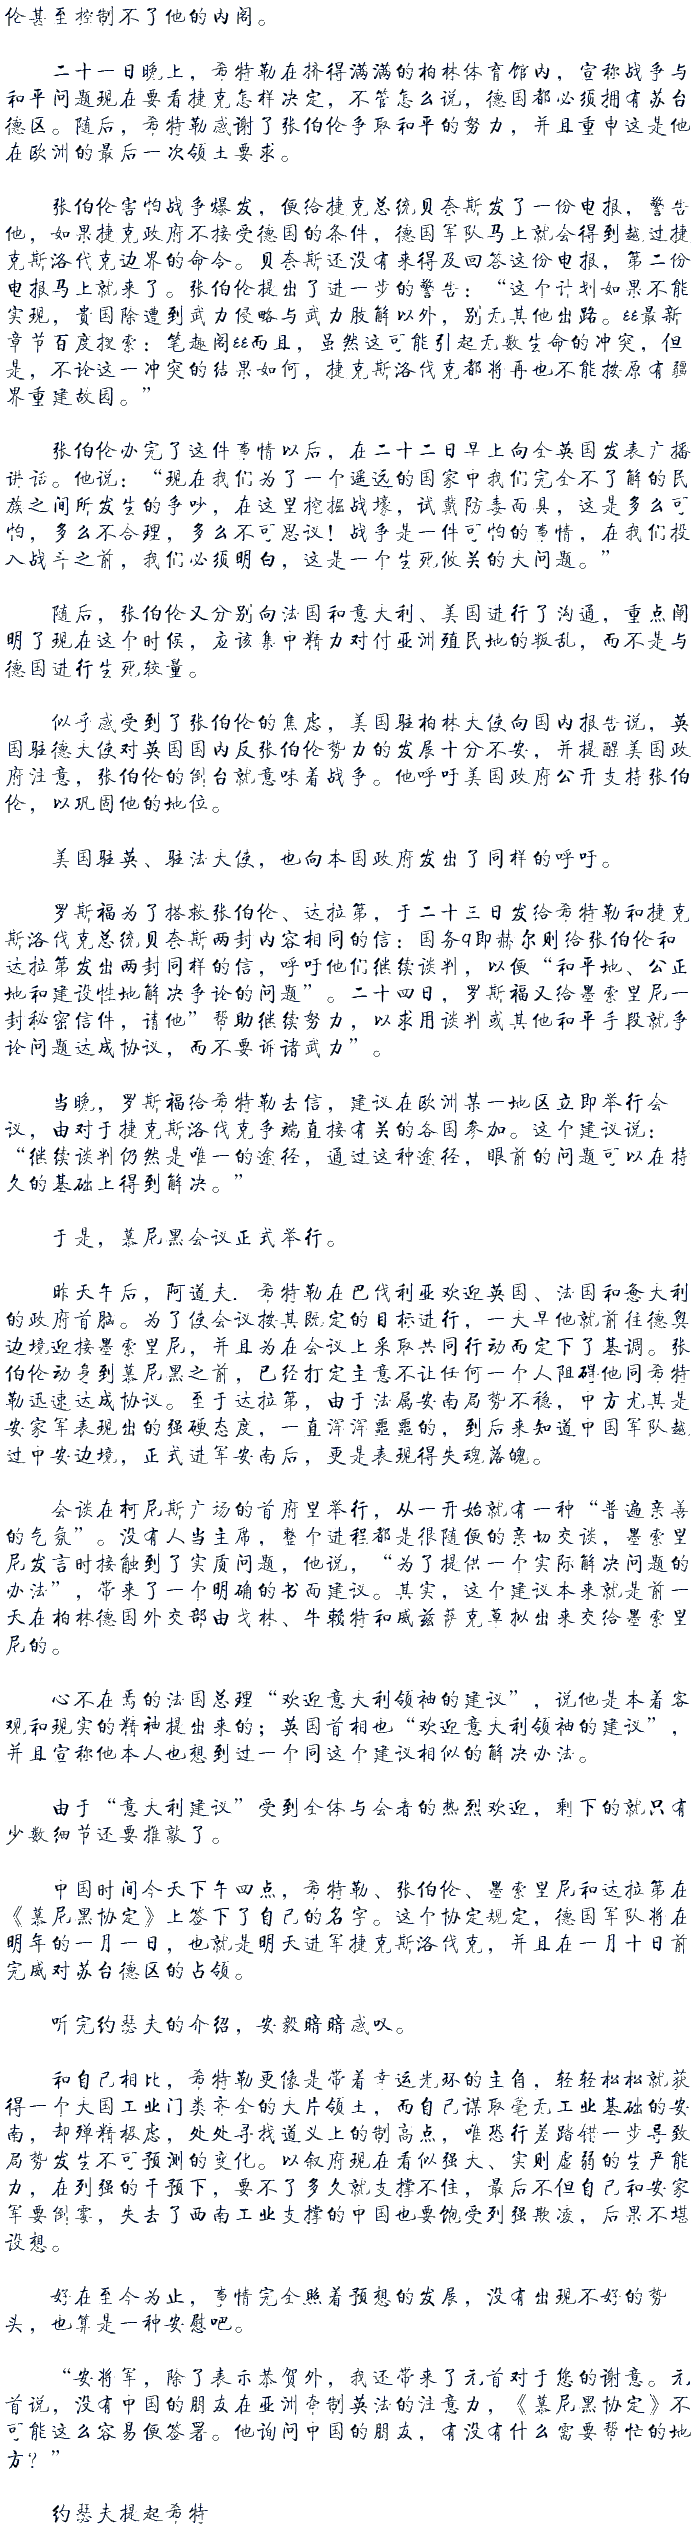 伦甚至控制不了他的内阁。
二十一日晚上，希特勒在挤得满满的柏林体育馆内，宣称战争与
和平问题现在要看捷克怎样决定，不管怎么说，德国都必须拥有苏台
德区。随后，希特勒感谢了张伯伦争取和平的努力，并且重申这是他
在欧洲的最后一次领土要求。
张伯伦害怕战争爆发，便给捷克总统贝奈斯发了一份电报，警告
他，如果捷克政府不接受德国的条件，德国军队马上就会得到越过捷
克斯洛伐克边界的命令。贝奈斯还没有来得及回答这份电报，第二份
电报马上就来了。张伯伦提出了进一步的警告：“这个计划如果不能
实现，贵国除遭到武力侵略与武力肢解以外，别无其他出路。εε最新
章节百度搜索：笔趣阁εε而且，虽然这可能引起无数生命的冲突，但
是，不论这一冲突的结果如何，捷克斯洛伐克都将再也不能按原有疆
界重建故园。”
张伯伦办完了这件事情以后，在二十二日早上向全英国发表广播
讲话。他说：“现在我们为了一个遥远的国家中我们完全不了解的民
族之间所发生的争吵，在这里挖掘战壕，试戴防毒面具，这是多么可
怕，多么不合理，多么不可思议！战争是一件可怕的事情，在我们投
入战斗之前，我们必须明白，这是一个生死攸关的大问题。”
随后，张伯伦又分别向法国和意大利、美国进行了沟通，重点阐
明了现在这个时候，应该集中精力对付亚洲殖民地的叛乱，而不是与
德国进行生死较量。
似乎感受到了张伯伦的焦虑，美国驻柏林大使向国内报告说，英
国驻德大使对英国国内反张伯伦势力的发展十分不安，并提醒美国政
府注意，张伯伦的倒台就意味着战争。他呼吁美国政府公开支持张伯
伦，以巩固他的地位。
美国驻英、驻法大使，也向本国政府发出了同样的呼吁。
罗斯福为了搭救张伯伦、达拉第，于二十三日发给希特勒和捷克
斯洛伐克总统贝奈斯两封内容相同的信：国务q即赫尔则给张伯伦和
达拉第发出两封同样的信，呼吁他们继续谈判，以便“和平地、公正
地和建设性地解决争论的问题”。二十四日，罗斯福又给墨索里尼一
封秘密信件，请他”帮助继续努力，以求用谈判或其他和平手段就争
论问题达成协议，而不要诉诸武力”。
当晚，罗斯福给希特勒去信，建议在欧洲某一地区立即举行会
议，由对于捷克斯洛伐克争端直接有关的各国参加。这个建议说：
“继续谈判仍然是唯一的途径，通过这种途径，眼前的问题可以在持
久的基础上得到解决。”
于是，慕尼黑会议正式举行。
昨天午后，阿道夫．希特勒在巴伐利亚欢迎英国、法国和意大利
的政府首脑。为了使会议按其既定的目标进行，一大早他就前往德奥
边境迎接墨索里尼，并且为在会议上采取共同行动而定下了基调。张
伯伦动身到慕尼黑之前，已经打定主意不让任何一个人阻碍他同希特
勒迅速达成协议。至于达拉第，由于法属安南局势不稳，中方尤其是
安家军表现出的强硬态度，一直浑浑噩噩的，到后来知道中国军队越
过中安边境，正式进军安南后，更是表现得失魂落魄。
会谈在柯尼斯广场的首府里举行，从一开始就有一种“普遍亲善
的气氛”。没有人当主席，整个进程都是很随便的亲切交谈，墨索里
尼发言时接触到了实质问题，他说，“为了提供一个实际解决问题的
办法”，带来了一个明确的书面建议。其实，这个建议本来就是前一
天在柏林德国外交部由戈林、牛赖特和威兹萨克草拟出来交给墨索里
尼的。
心不在焉的法国总理“欢迎意大利领袖的建议”，说他是本着客
观和现实的精神提出来的；英国首相也“欢迎意大利领袖的建议”，
并且宣称他本人也想到过一个同这个建议相似的解决办法。
由于“意大利建议”受到全体与会者的热烈欢迎，剩下的就只有
少数细节还要推敲了。
中国时间今天下午四点，希特勒、张伯伦、墨索里尼和达拉第在
《慕尼黑协定》上签下了自己的名字。这个协定规定，德国军队将在
明年的一月一日，也就是明天进军捷克斯洛伐克，并且在一月十日前
完成对苏台德区的占领。
听完约瑟夫的介绍，安毅暗暗感叹。
和自己相比，希特勒更像是带着幸运光环的主角，轻轻松松就获
得一个大国工业门类齐全的大片领土，而自己谋取毫无工业基础的安
南，却殚精极虑，处处寻找道义上的制高点，唯恐行差踏错一步导致
局势发生不可预测的变化。以叙府现在看似强大、实则虚弱的生产能
力，在列强的干预下，要不了多久就支撑不住，最后不但自己和安家
军要倒霉，失去了西南工业支撑的中国也要饱受列强欺凌，后果不堪
设想。
好在至今为止，事情完全照着预想的发展，没有出现不好的势
头，也算是一种安慰吧。
“安将军，除了表示恭贺外，我还带来了元首对于您的谢意。元
首说，没有中国的朋友在亚洲牵制英法的注意力，《慕尼黑协定》不
可能这么容易便签署。他询问中国的朋友，有没有什么需要帮忙的地
方？”
约瑟夫提起希特